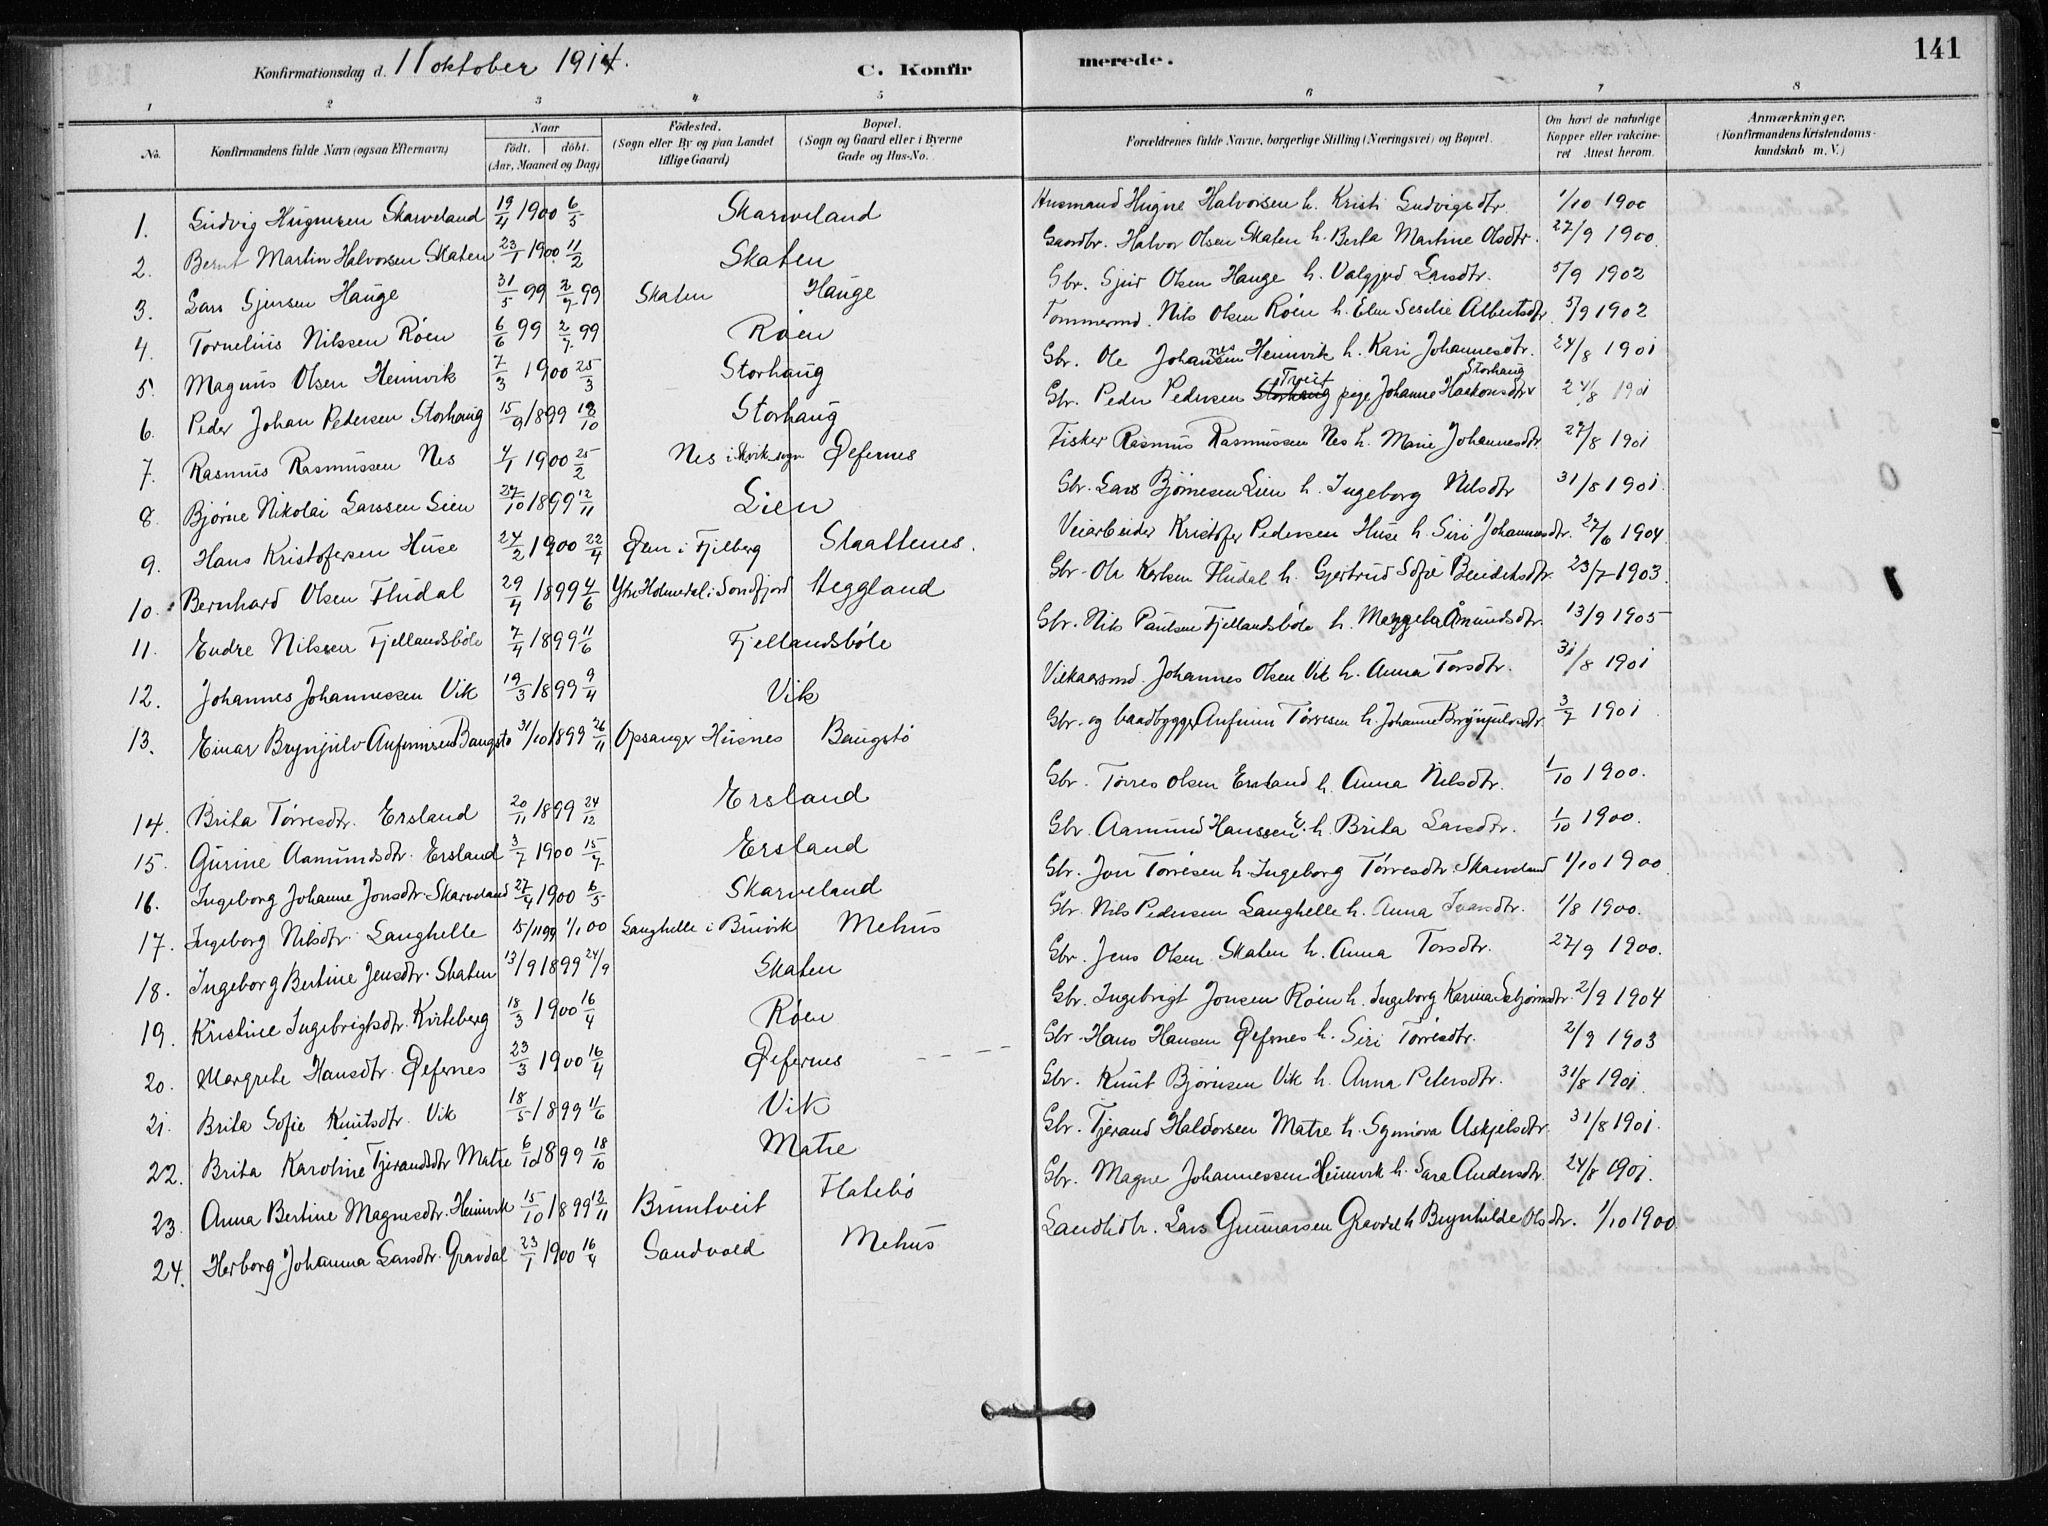 Konfirmationsdag d. 11 oktober 1914.
C. Konfirmerede.
141
1 2 3 4 5 6 7 8
No.
Konfirmandens fulde Navn (ogsaa Efternavn)
Naar födt. döbt. (Aar, Maaned og Dag)
Födested. (Sogn eller By og paa Landet tillige Gaard)
Bopæl. (Sogn og Gaard eller i Byerne Gade og Hus-No.
Forældrenes fulde Navne, borgerlige Stilling (Næringsvei) og Bopæl.
Om havt de naturlige Kopper eller vakcineret Attest herom.
Anmærkninger. (Konfirmandens Kristendomskundskab m. V.)
1. Ludvig Hugnesen Skarveland 19/4 1900 6/5 Skarveland Husmand Hugne Halvorsen h. Kristi Ludvigsdtr. 1/10 1900
2. Bernt Martin Halvorsen Skaten 23/1 1900 11/2 Skaten Gaardbr. Halvor Olsen Skaten h. Berta Martine Olsdtr. 27/9 1900.
3. Lars Sjursen Hauge 31/5 99 2/7 99 Skaten Hauge Gbr. Sjur Olsen Hauge h. Valgjerd Larsdtr. 5/9 1902
4. Tornelius Nilssen Röen 6/6 99 2/7 99 Röen Tommermd. Nils Olsen Röen h. Elen Sesilie Albertsdtr. 5/9 1902
5. Magnus Olsen Heimvik 7/3 1900 25/3 Storhaug Gbr. Ole Johannesen Heimvik h. Kari Johannesdtr. 24/8 1901
6. Peder Johan Pedersen Storhaug 15/9 1899 18/10 Storhaug Gbr. Peder Pedersen Storhaug Tveit pige Johanne Haakonsdtr Storhaug 24/8 1901
7. Rasmus Rasmussen Nes 4/1 1900 25/2 Nes i Skvik sogn Øefernes Fisker Rasmus Rasmussen Nes h. Marie Johannesdtr. 27/8 1901
8. Bjørne Nikolai Larssen Lien 27/10 1899 12/11 Lien Gbr. Lars Bjørnesen Lien h. Ingeborg Nilsdtr 31/8 1901.
9. Hans Kristofersen Huse 24/2 1900 22/4 Øen i Fjelberg Slaattenes. Veiarbeider Kristofer Pedersen Huse h. Siri Johannesdtr. 27/6 1904
10. Bernhard Olsen Fludal 29/4 1899 4/6 Ytre Holmedal i Søndfjord Heggland Gbr. Ole Karlsen Fludal h. Gjertrud Sofie Bendiksdtr. 23/7 1903.
11. Endre Nilssen Fjellandsböle 7/4 1899 11/6 Fjellandsböle Gbr. Nils Paulsen Fjellandsböle h. Maggela Åmundsdtr. 13/9 1905
12. Johannes Johannessen Vik 19/3 1899 9/4 Vik Vilkaarsmd. Johannes Olsen Vik h. Anna Torsdtr. 31/8 1901
13. Einar Brynjulv Anfinnsen Baugstø 31/10 1899 26/11 Opsanger Husnes Baugstø Gbr. og baadbygger Anfinn Tørresen h. Johanne Brynjulvsdtr. 3/7 1901
14. Brita Tørresdtr. Ersland 20/11 1899 24/12 Ersland Gbr. Tørres Olsen Ersland h. Anna Nilsdtr. 1/10 1900.
15. Gurine Aamundsdtr. Ersland 3/7 1900 15/7 Ersland Gbr. Aamund Hanssen E. h. Brita Larsdtr. 1/10 1900.
16. Ingeborg Johanne Jonsdtr. Skarveland 27/4 1900 6/5 Skarveland Gbr. Jon Torresen h. Ingeborg Tørresdtr. Skarveland 1/10 1900
17. Ingeborg Nilsdtr. Langhelle 15/11 99 1/1 00 Langhelle i Bruvik Mehus Gbr. Nils Pedersen Langhelle h. Anna Ivarsdtr. 1/8 1900.
18. Ingeborg Bertine Jensdtr. Skaten 13/9 1899 24/9 Skaten Gbr. Jens Olsen Skaten h. Anna Torsdtr. 27/9 1900.
19. Kristine Ingebrigtsdtr. Kviteberg 18/3 1900 16/4 Röen Gbr. Ingebrigt Jonsen Röen h. Ingeborg Karina Asbjørnsdtr. 2/9 1904
20. Margrete Hansdtr. Øefernes 23/3 1900 16/4 Øefernes Gbr. Hans Hansen Øefernes h. Siri Tørresdtr. 2/9 1903
21. Brita Sofie Knutsdtr. Vik 18/5 1899 11/6 Vik Gbr. Knut Bjørnsen Vik h. Anna Petersdtr. 31/8 1901.
22. Brita Karoline Tjerandsdtr Matre 6/10 1899 18/10 Matre Gbr. Tjerand Haldorsen Matre h. Synnöva Askjelsdtr. 31/8 1901.
23. Anna Bertine Magnesdtr. Heimvik 15/10 1899 12/11 Bruntveit Flatebø Gbr. Magne Johannessen Heimvik h. Sara Andersdtr. 24/8 1901.
24. Herborg Johanna Larsdtr. Gravdal 23/1 1900 16/4 Sandvold Mehus Landhdtr. Lars Gunnarsen Gravdal h Brynhilde Olsdtr. 1/10 1900.